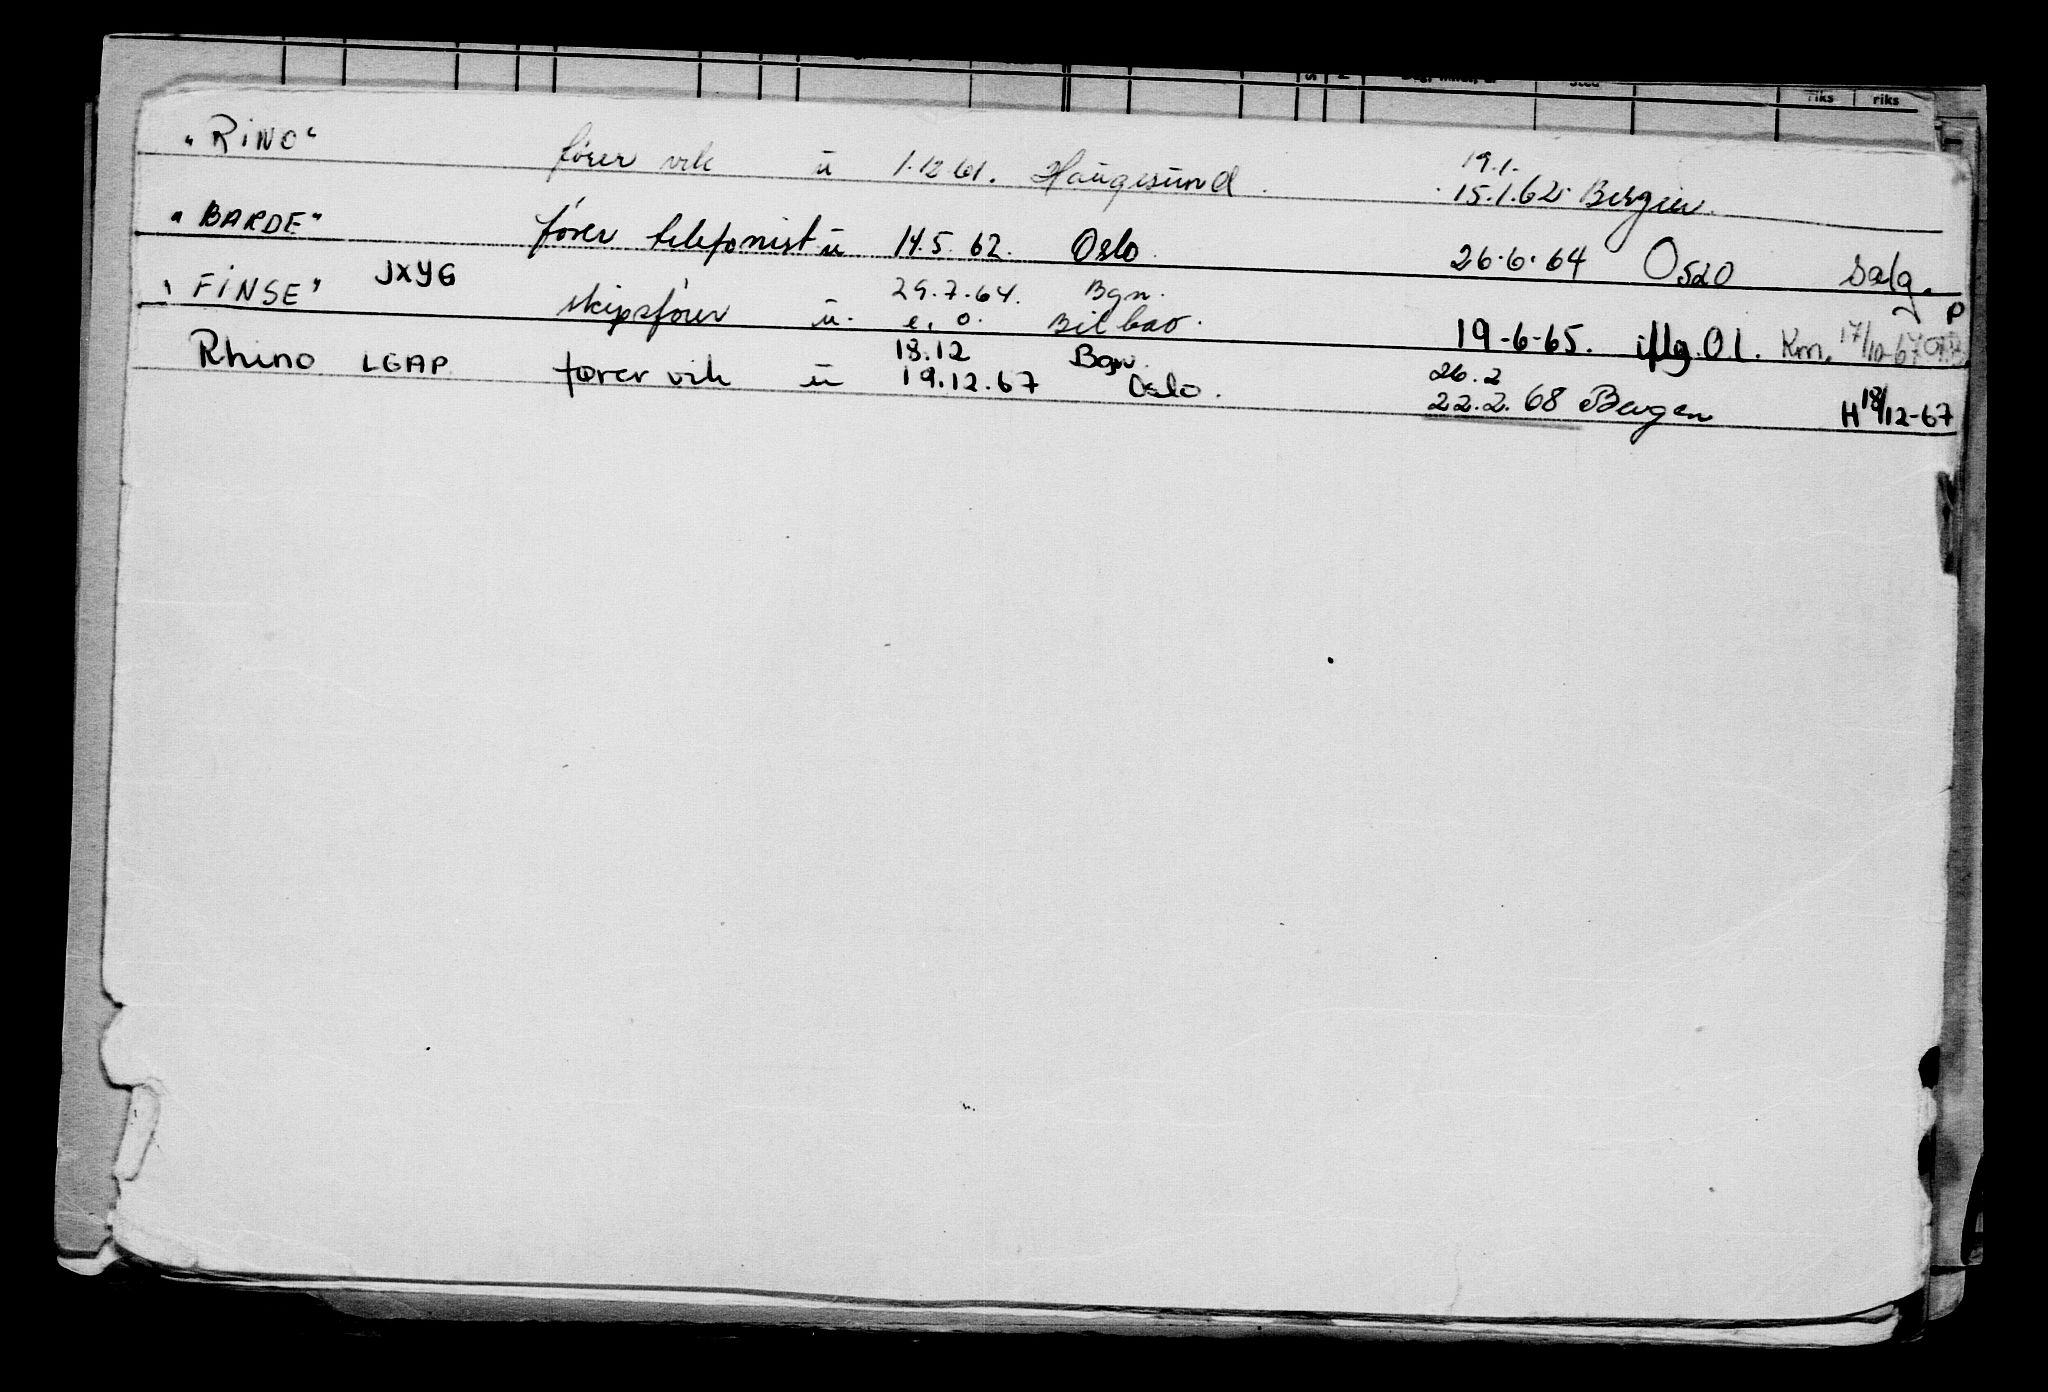 riks riks
"RINO" fører vik u 1.12.61. Haugesund. 19.1.
15.1.62 Bergen.
"BARDE" fører telefonist u 14.5.62. Oslo. 26.6.64 Oslo Salg.
"FINSE" JXYG skipsfører u. 29.7.64. Bgn.
e.o. Bilbao. 19-6-65. iflg. Ol. Km. 17/10-67 P
Rhino LGAP fører vik u 18.12 Bgn.
19.12.67 Oslo. 26.2
22.2.68 Bergen H 18/12-67